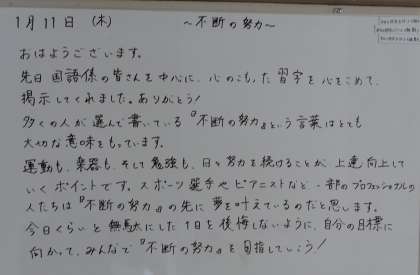 1月11日（木） ～不断の努力～
おはようございます。
先日国語係の皆さんを中心に、心のこもった習字を心をこめて、
掲示してくれました。ありがとう！
多くの人が選んで書いている『不断の努力』という言葉はとても
大切な意味をもっています。
運動も、楽器も、そして勉強も、日々努力を続けることが、上達、向上して
いくポイントです。スポーツ選手やピアニストなど一部のプロフェッショナルの
人たちは『不断の努力』の先に夢を叶えているのだと思います。
今日くらいと無駄にした1日を後悔しないように、自分の目標に
向かって、みんなで『不断の努力』を目指していこう！